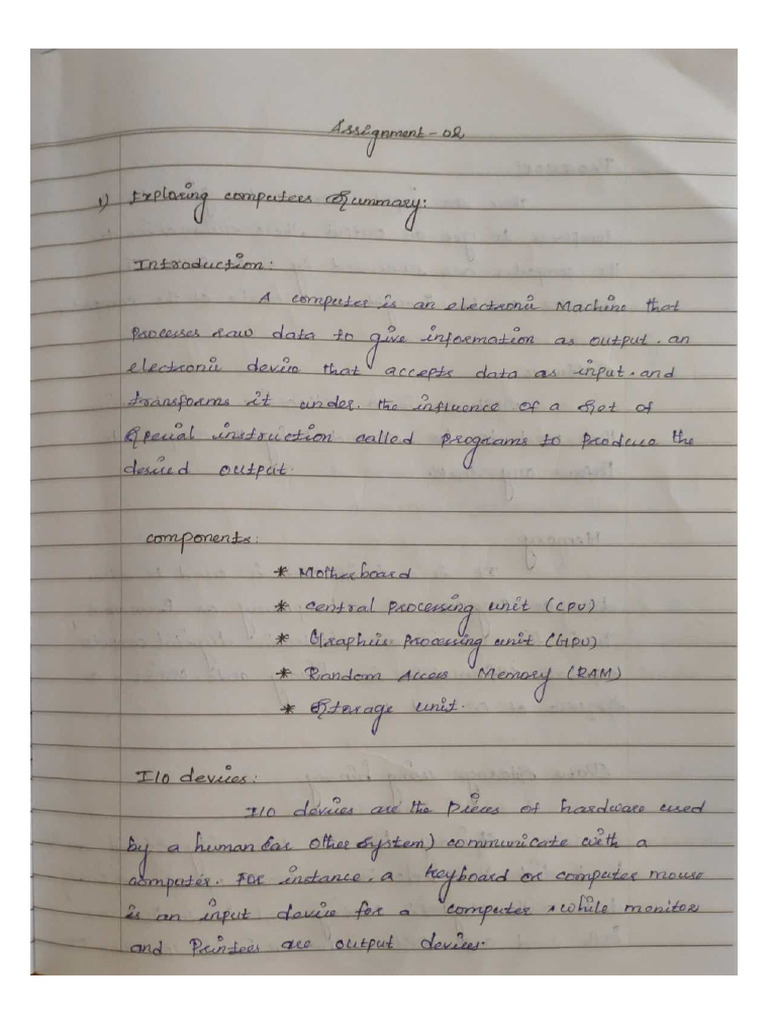 Assignment - 02
1) Exploring computers Summary:
Introduction:
A computer is an electronic Machine that
processes raw data to give information as output. an
electronic device that accepts data as input. and
transforms it under. the influence of a set of
special instruction called programs to produce the
desired output.
components:
* Motherboard
* central processing unit (CPU)
* Graphics processing unit (GPU)
* Random Access Memory (RAM)
* Storage unit.
I/O devices:
I/O devices are the pieces of hardware used
by a human (or other system) communicate with a
computer. For instance, a keyboard or computer mouse
is an input device for a computer, while monitor
and Printers are output devices.